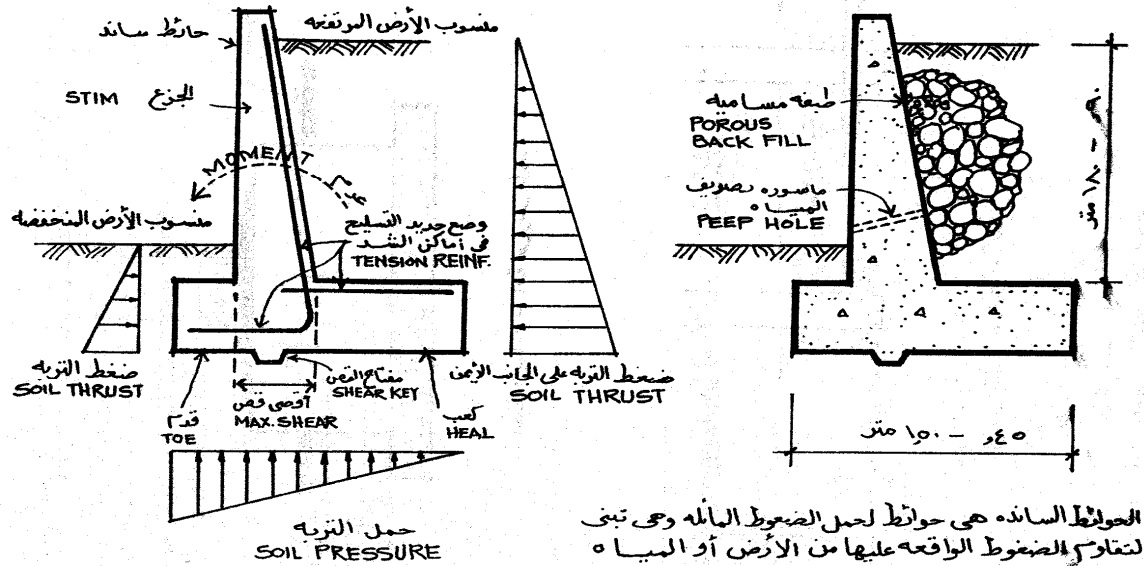 منسوب الأرض المرتفعه
حائط ساند
STIM الجزع
MOMENT
عزم
منسوب الأرض المنخفضه
وضع حديد التسليح
في أماكن الشد
TENSION REINF.
ضغط التربه
SOIL THRUST
قدم
TOE
أقصى قص
MAX. SHEAR
مفتاح القص
SHEAR KEY
كعب
HEAL
ضغط التربه على الجانب الأيمن
SOIL THRUST
حمل التربه
SOIL PRESSURE
طبقه مساميه
POROUS
BACK FILL
ماسوره تصريف
المياه
PEEP HOLE
٩٠, – ١٨٠ متر
٤٥, – ١,٥٠ متر
الحوائط السانده هى حوائط لحمل الضغوط المائله وهى تبنى
لتقاوم الضغوط الواقعه عليها من الأرض أو المياه